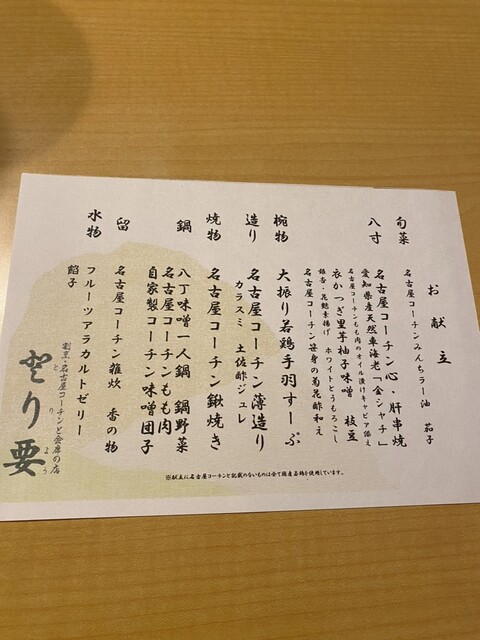 お献立
旬菜 名古屋コーチンみんちラー油 茄子
八寸 名古屋コーチン心・肝串焼
愛知県産天然車海老「金シャチ」
名古屋コーチンもも肉のオイル漬けキャビア添え
衣かつぎ里芋柚子味噌 枝豆
銀杏・花麩素揚げ ホワイトとうもろこし
名古屋コーチン笹身の菊花酢和え
椀物 大振り若鶏手羽すーぷ
造り 名古屋コーチン薄造り
カラスミ 土佐酢ジュレ
焼物 名古屋コーチン鍬焼き
鍋 八丁味噌一人鍋 鍋野菜
名古屋コーチンもも肉
自家製コーチン味噌団子
留 名古屋コーチン雑炊 香の物
水物 フルーツアラカルトゼリー
餡子
割烹・名古屋コーチンと会席の店
とり要
よう
※献立に名古屋コーチンと記載のないものは全て国産若鶏を使用しています。